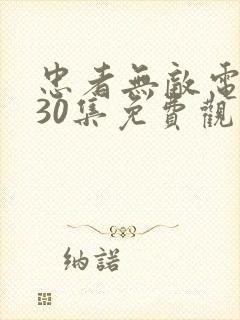 忠者無敵電
30集免費觀
納諾